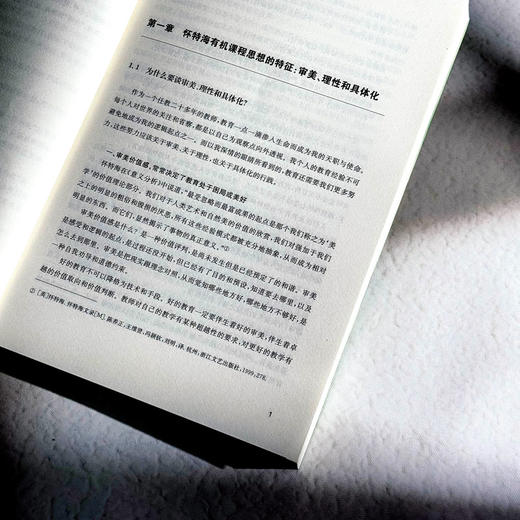 第一章 怀特海有机课程思想的特征:审美、理性和具体化
1.1 为什么要谈审美、理性和具体化?
作为一个任教二十多年的教师,教育一点一滴渗入生命而成为我的天职与使命。
每个人对世界的关注和省察,都是以自己为观察点向外透视。我个人的教育经验不可
避免地成为我的逻辑起点之一,而以我深情的眼睛所看到的,教育还需要我们更多努
力,这些努力应该关乎审美、关乎理性,也关乎具体化的行践。
一、审美价值感,常常决定了教育处于困局或美好
怀特海在《意义分析》中说道:“最受忽略而最富成果的起点是那个我们称之为‘美
学’的价值理论部分。我们对于人类艺术和自然美的价值的欣赏,我们对强加于我们
之上的明显的粗俗和毁损的厌恶,所有这些经验模式都被充分地抽象,从而成为相对
明显的东西。而它们,显然揭示了事物的真正意义。”①
审美价值感是什么?是一种价值评判,是尚未发生但是已经预定了的和谐。审美
是感受和逻辑的起点,是过程还没开始,但已经有了目的和预设,知道要去哪里,以及
怎么去到那里。审美是把现实跟理念对照,从而觉知哪些地方好,哪些地方不够好,是
一种自我劝导和道德约束。
好的教育不可以降格为技术和手段。好的教育一定要伴生着好的审美,伴生着卓
越的价值取向和价值判断。教师对自己的教学有某种超越性的要求,对更好的教学有
① [英]怀特海. 怀特海文录[M]. 陈养正,王维贤,冯颖钦,刘明,译. 杭州:浙江文艺出版社,1999:278.
1